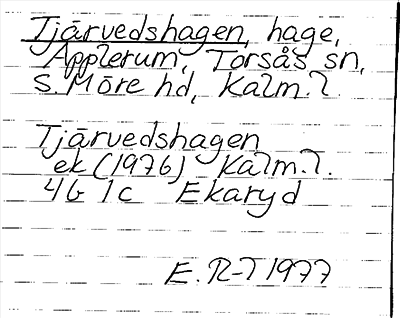 Tjärvedshagen, hage,
Applerum, Torsås sn,
S. Möre hd, Kalm.l.
Tjärvedshagen
ek (1976) Kalm.l.
4G 1c Ekaryd
E. R-T 1977